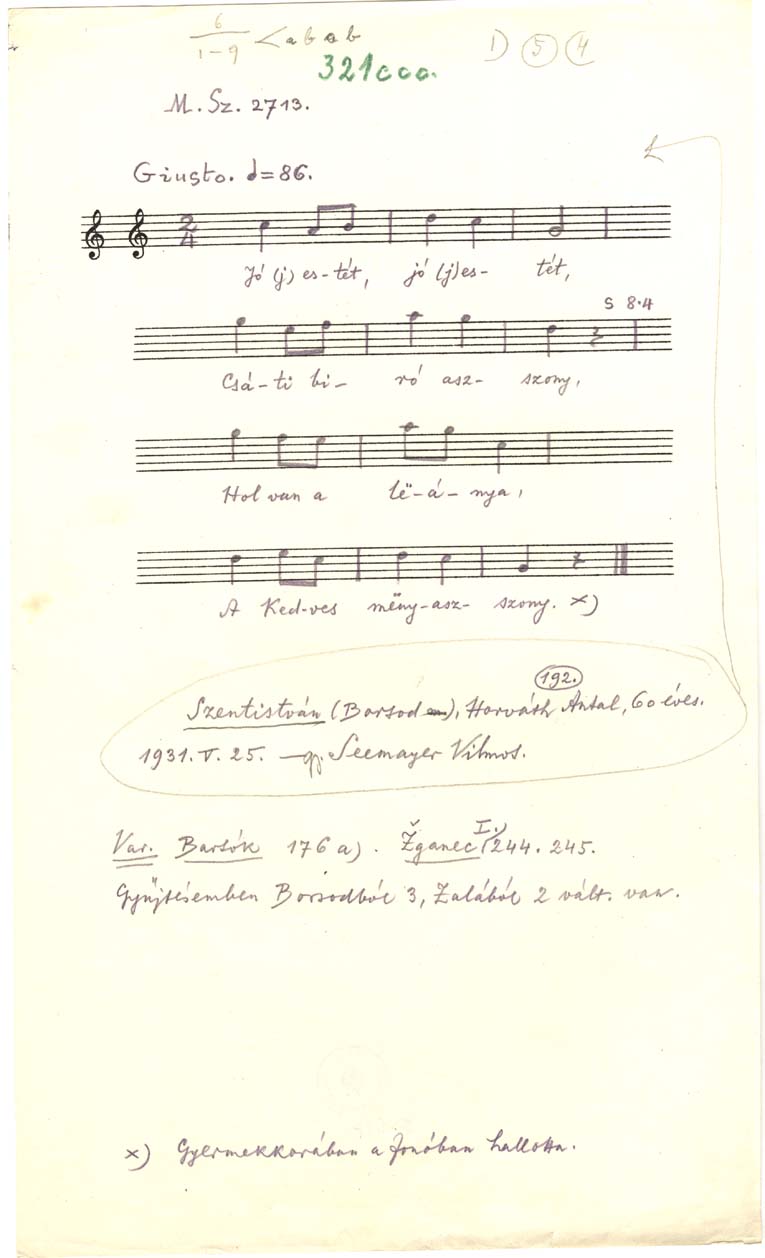 6
1-9 < abab
1) 5 4
321ccc.
M. Sz. 2713.
Giusto. =86.
2
4
Jó (j) es-tét, jó (j)es- tét,
S 8.4
Csá-ti bi- ró asz- szony,
Hol van a lë-á-nya,
A Ked-ves mëny-asz- szony. x)
192.
Szentistván (Borsod), Horváth Antal, 60 éves.
1931. V. 25. gy. Seemayer Vilmos.
Var. Bartók 176 a). Žganec I./244. 245.
Gyűjtésemben Borsodból 3, Zalából 2 vált. van.
x) Gyermekkorában a fonóban hallotta.